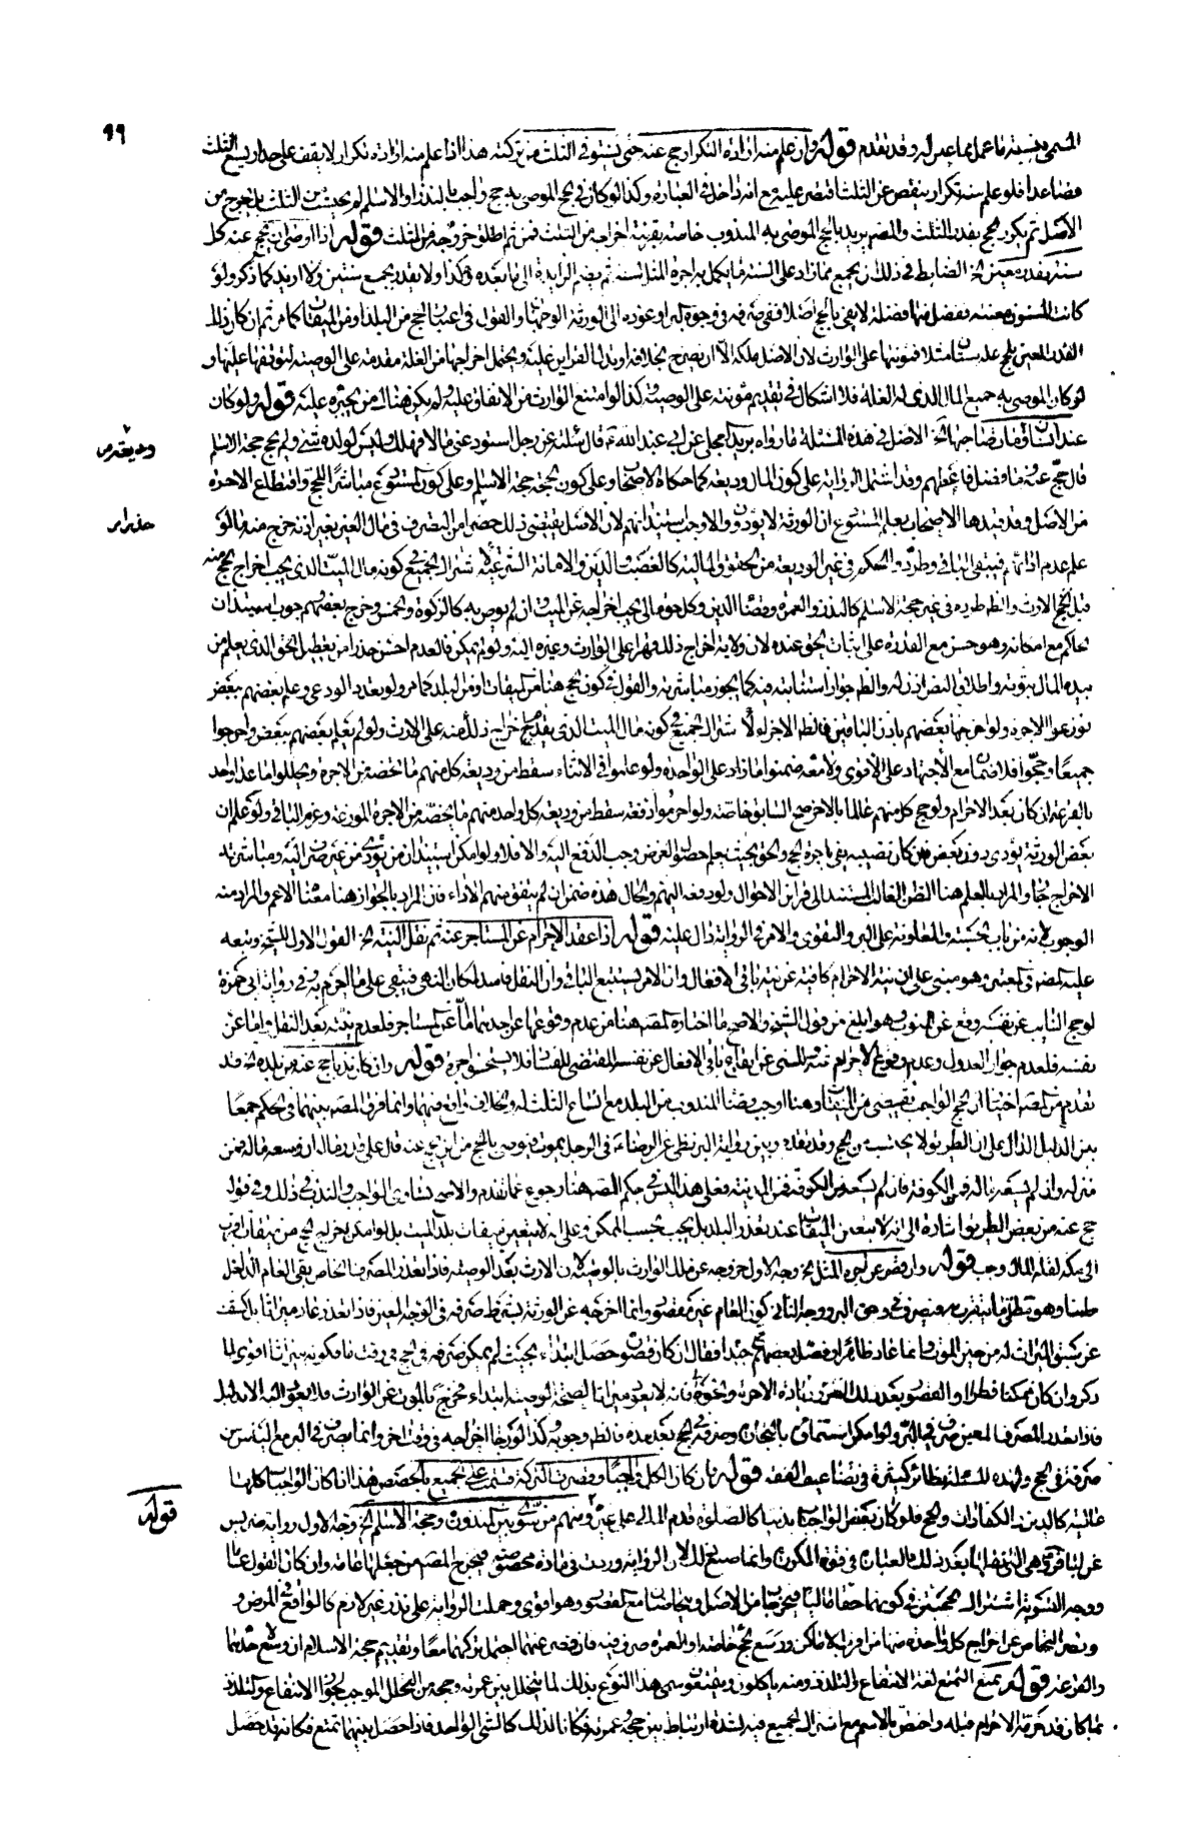 ٩٩
المسمى بنسبة ما عمل مما عين له وقد تقدم قوله وان علم منه ارادة التكرار حج عنه حتى يستوفى الثلث من تركته هذا اذا علم منه ارادة تكرار لا يقف على حد او يسع الثلث
فصاعدا فلو علم منه تكرار ينقص عن الثلث اقتصر عليه مع انه داخل في العبارة وكذا لو كان في الحج الموصى به حج واجب بالنذر او الاسلام لم يحتسب من الثلث بل يخرج من
الاصل ثم يكرر الحج بقدر الثلث والمصنف يريد بالحج الموصى به المندوب خاصة بقرينة اخراجه من الثلث فمن ثم اطلق خروجه من الثلث قوله اذا اوصى ان يحج عنه كل
سنة بقدر معين الخ الضابط في ذلك ان يجمع مما زاد على السنة ما يكمل به اجرة المثل لسنة ثم يضم الزايد الى ما بعده وهكذا ولا يقدر بجمع سنتين ولا ازيد كما ذكر ولو
كانت السنون معينة ففضل منها فضلة لا يفى بالحج اصلا ففى صرفه في وجوه البر او عوده الى الورثة الوجهان والقول في اعتبار الحج من البلد او من الميقات كما مر ثم ان كان ذلك
القدر المعين غلة بستان مثلا فمؤنتها على الوارث لان الاصل ملكه الا ان يصرح بخلافه او تدل القراين عليه ويحتمل اخراجها من الغلة مقدمة على الوصية لتوقفها عليها و
لو كان الموصى به جميع المال الذى له الغلة فلا اشكال في تقديم مؤنته على الوصية وكذا لو امتنع الوارث من الانفاق عليه ولم يكن هناك من يجبره عليه قوله ولو كان
عند انسان وديعة ومات صاحبها الخ الاصل في هذه المسئلة ما رواه بريد العجلى عن ابي عبد الله ع قال سئلته عن رجل استودعنى مالا فهلك وليس لولده شئ ولم يحج حجة الاسلام
قال حج عنه وما فضل فاعطهم وقد اشتملت الرواية على كون المال وديعة كما حكاه الاصحاب وعلى كون الحجة حجة الاسلام وعلى كون المستودع مباشرا للحج واقتطاع الاجرة
من الاصل وقد قيدها الاصحاب بعلم المستودع ان الورثة لا يؤدون والا وجب استيذانهم لان الاصل يقتضى ذلك حذرا من التصرف في مال الغير بغير اذنه خرج منه ما لو
علم عدم ادائهم فيبقى الباقى وطرد الحكم في غير الوديعة من الحقوق المالية كالغصب والدين والامانة الشرعية لاشتراك الجميع في كونه مال الميت الذى يجب اخراج الحج منه
قبل الارث والظاهر طرده في غير حجة الاسلام كالنذر والعمرة وقضاء الدين وكل حق مالى يجب اخراجه عن الميت وان لم يوص به كالزكوة والخمس وخرج بعضهم وجوب استيذان
الحاكم مع امكانه وهو حسن مع القدرة على اثبات الحق عنده لان ولاية اخراج ذلك قهرا على الوارث وغيره اليه ولو لم يمكن فالعدم احسن حذرا من تعطيل الحق الذى يعلم من
بيده المال ثبوته واطلاق النص اذن له والظاهر جواز استنابته فيه كما يجوز مباشرته والقول في كون الحج هنا من الميقات او من البلد كما مر ولو تعدد الودعى وعلم بعضهم ببعض
توزعوا الاجرة ولو اخرجها بعضهم باذن الباقين فالظاهر الاجزاء لاشتراك الجميع في كونه مال الميت الذى يقدم اخراج ذلك منه على الارث ولو لم يعلم بعضهم ببعض واخرجوا
جميعا وحجوا فلا ضمان مع الاجتهاد على الاقوى ولا معه ضمنوا ما زاد على الواحدة ولو علموا في الاثناء سقط من وديعة كل منهم ما تخصه من الاجرة ويحللوا ما عدا واحد
بالقرعة ان كان بعد الاحرام ولو حج كل منهم عالما بالآخر صح السابق خاصة ولو احرموا دفعة سقط من وديعة كل واحد منهم ما يخصه من الاجرة الموزعة وغرم الباقى ولو علم ان
بعض الورثة يؤدى دون بعض فمن كان نصيبه يفى باجرة الحج والحق بحيث يعلم حصول الغرض وجب الدفع اليه والا فلا ولو امكن استيذان من يؤدى من غير ضرر اليه ومباشرته
الاخراج جاز والمراد بالعلم هنا الظن الغالب المستند الى قراين الاحوال ولو دفعه اليهم والحال هذه ضمن ان لم يتفق منهم الاداء فان المراد بالجواز هنا معناه الاعم والمراد منه
الوجوب لانه من باب الحسبة والمعاونة على البر والتقوى والامر في الرواية دال عليه قوله اذا عقد الاحرام عن المستاجر عنه ثم نقل النية الخ القول الاول للشيخ وتبعه
عليه المصنف في المعتبر وهو مبنى على ان نية الاحرام كافية عن نية باقى الافعال وان الامر يستتبع الباقى وان النقل فاسد لمكان النهى فيبقى على ما احرم به وفى رواية ابى حمزة
لو حج النايب عن نفسه وقع عن المنوب وهو ابلغ من قول الشيخ والاصح ما اختاره المصنف هنا من عدم وقوعها عن احدهما اما عن المستاجر فلعدم نيته بعد النقل واما عن
نفسه فلعدم جواز العدول وعدم وقوع الاحرام بنيته المسمى عن ايقاع باقى الافعال عن نفسه المقتضى للفساد فلا يستحق اجرة قوله وان كان نذبا حج عنه من بلده الخ قد
تقدم من المصنف اختيار ان الحج الواجب يقضى من الميقات وهنا اوجب قضاء المندوب من البلد مع اتساع الثلث له والخلاف واقع فيهما وانما فرق المصنف بينهما في الحكم جمعا
بين الدليل الدال على ان الطريق لا يحتسب من الحج وقد تقدم وبين رواية البزنطى عن الرضا ع في الرجل يموت فيوصى بالحج من اين يحج عنه قال على قدر ماله ان وسعه ماله فمن
منزله وان لم يسعه ماله فمن الكوفة فان لم يسعه من الكوفة فمن المدينة فعلى هذا ليس في حكم المصنف هنا رجوع عما تقدم والاصح تساوى الواجب والندب في ذلك وفى قوله
حج عنه من بعض الطريق اشارة الى انه لا يتعين الميقات عند تعذر البلد بل يجب بحسب الممكن وعلى انه لا يتعين ميقات بلد الميت بل لو امكن اخراج الحج من ميقات اقرب
الى مكة لقلة المال وجب قوله وان قصر عن اجرة المثل الخ وجه الاول خروجه عن ملك الوارث بالوصية لان الارث بعد الوصية فاذا تعذر المصرف الخاص بقى العام الداخل
ضمنا وهو مطلق ما يتقرب به فيصرف في وجوه البر ووجه الثانى كون العام غير مقصود وانما اخرجه عن الورثة بشرط صرفه في الوجه المعين فاذا تعذر عاد ميراثا بل كشف
عن سبق الميراث له من حين الموت وانما عاد ظاهرا وفصل بعضهم جيدا فقال ان كان قصوره حصل ابتداء بحيث لم يمكن صرفه في الحج في وقت ما فكونه ميراثا اقوى لما
ذكر وان كان ممكنا فطرأ القصور بعد ذلك لعروض زيادة الاجرة ونحوه فانه لا يعود ميراثا لصحة الوصية ابتداء فخرج بالموت عن الوارث فلا يعود اليه الا بدليل
فاذا تعذر المصرف المعين صرف في البر ولو امكن استنماؤه بالتجارة وصرفه في الحج بعد مدة فالظاهر وجوبه وكذا لو رجا اخراجه في وقت آخر وانما يصرف في البر مع الياس من
صرفه في الحج ولهذه المسئلة نظائر كثيرة في تضاعيف الفقه قوله فان كان الكل واجبا وقصرت التركة قسمت على الجميع بالحصص هذا اذا كان الواجب كلها
مالية كالدين والكفارات والحج فلو كان بعض الواجبات بدنيا كالصلوة قدم المالى عليه عندهم ومنهم من سوى بين المنذورة وحجة الاسلام الخ وجه الاول رواية ضريس
عن الباقر ع وهى التى نقلها بعد ذلك بالعبارة في قوة المكرر وانما صنع ذلك لان الرواية وردت في مادة مخصوصة فيخرج المصنف من جعلها عامة وان كان القول عاما
ووجه التسوية اشتراك الحجتين في كونهما حقا ماليا فيخرجان من الاصل ويتحاصان مع القصور وهو اقوى وحملت الرواية على نذر غير لازم كالواقع في المرض و
لو قصر التحاص عن اخراج كل واحدة منهما من اقرب الاماكن ووسع الحج خاصة او العمرة صرف فيه فان قصر عنهما احتمل تركهما معا وتقديم حجة الاسلام ان وسع احدهما
والقرعة قوله تمتع التمتع لغة الانتفاع والتلذذ ومنه ياكلون ويتمتعون سمى هذا النوع بذلك لما يتخلل بين عمرته وحجه من التحلل الموجب لجواز الانتفاع والتلذذ
بما كان قد حرمه الاحرام قبله واختص بالاسم مع اشتراك الجميع فيه لشدة ارتباط بين حجه وعمرته فكانا لذلك كالشئ الواحد فاذا حصل بينهما تمتع فكانه قد حصل
قوله